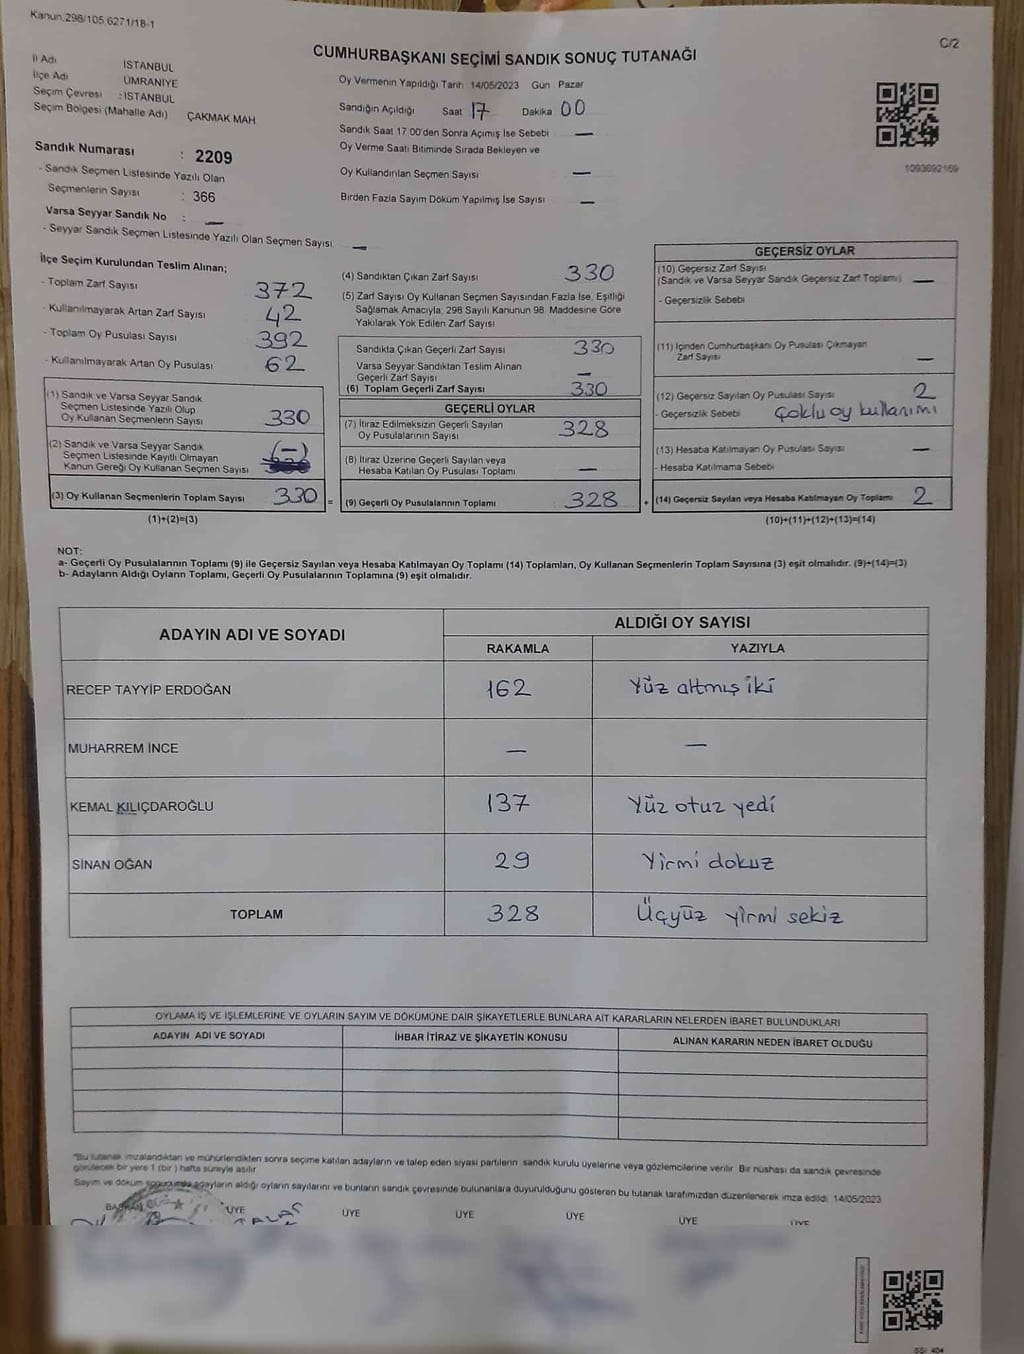 Kanun.298/105.6271/18-1
C/2
CUMHURBAŞKANI SEÇİMİ SANDIK SONUÇ TUTANAĞI
İl Adı İSTANBUL
İlçe Adı ÜMRANİYE
Seçim Çevresi : İSTANBUL
Seçim Bölgesi (Mahalle Adı) ÇAKMAK MAH
Sandık Numarası : 2209
- Sandık Seçmen Listesinde Yazılı Olan
Seçmenlerin Sayısı : 366
Varsa Seyyar Sandık No : —
- Seyyar Sandık Seçmen Listesinde Yazılı Olan Seçmen Sayısı. —
Oy Vermenin Yapıldığı Tarih 14/05/2023 Gün Pazar
Sandığın Açıldığı Saat 17 Dakika 00
Sandık Saat 17 00'den Sonra Açımış İse Sebebi —
Oy Verme Saati Bitiminde Sırada Bekleyen ve
Oy Kullandırılan Seçmen Sayısı —
Birden Fazla Sayım Döküm Yapılmış İse Sayısı —
1093692159
İlçe Seçim Kurulundan Teslim Alınan;
- Toplam Zarf Sayısı 372
- Kullanılmayarak Artan Zarf Sayısı 42
- Toplam Oy Pusulası Sayısı 392
- Kullanılmayarak Artan Oy Pusulası 62
(1) Sandık ve Varsa Seyyar Sandık
Seçmen Listesinde Yazılı Olup
Oy Kullanan Seçmenlerin Sayısı 330
(2) Sandık ve Varsa Seyyar Sandık
Seçmen Listesinde Kayıtlı Olmayan
Kanun Gereği Oy Kullanan Seçmen Sayısı (—)
(3) Oy Kullanan Seçmenlerin Toplam Sayısı 330 =
(1)+(2)=(3)
(4) Sandıktan Çıkan Zarf Sayısı 330
(5) Zarf Sayısı Oy Kullanan Seçmen Sayısından Fazla İse, Eşitliği
Sağlamak Amacıyla, 298 Sayılı Kanunun 98. Maddesine Göre
Yakılarak Yok Edilen Zarf Sayısı
Sandıkta Çıkan Geçerli Zarf Sayısı 330
Varsa Seyyar Sandıktan Teslim Alınan
Geçerli Zarf Sayısı —
(6) Toplam Geçerli Zarf Sayısı 330
GEÇERLİ OYLAR
(7) İtiraz Edilmeksizin Geçerli Sayılan
Oy Pusulalarının Sayısı 328
(8) İtiraz Üzerine Geçerli Sayılan veya
Hesaba Katılan Oy Pusulası Toplamı —
(9) Geçerli Oy Pusulalarının Toplamı 328 +
GEÇERSİZ OYLAR
(10) Geçersiz Zarf Sayısı
(Sandık ve Varsa Seyyar Sandık Geçersiz Zarf Toplamı) —
- Geçersizlik Sebebi
(11) İçinden Cumhurbaşkanı Oy Pusulası Çıkmayan
Zarf Sayısı —
(12) Geçersiz Sayılan Oy Pusulası Sayısı 2
- Geçersizlik Sebebi Çoklu oy kullanımı
(13) Hesaba Katılmayan Oy Pusulası Sayısı —
- Hesaba Katılmama Sebebi
(14) Geçersiz Sayılan veya Hesaba Katılmayan Oy Toplamı 2
(10)+(11)+(12)+(13)=(14)
NOT:
a- Geçerli Oy Pusulalarının Toplamı (9) ile Geçersiz Sayılan veya Hesaba Katılmayan Oy Toplamı (14) Toplamları, Oy Kullanan Seçmenlerin Toplam Sayısına (3) eşit olmalıdır. (9)+(14)=(3)
b- Adayların Aldığı Oyların Toplamı, Geçerli Oy Pusulalarının Toplamına (9) eşit olmalıdır.
ADAYIN ADI VE SOYADI
ALDIĞI OY SAYISI
RAKAMLA YAZIYLA
RECEP TAYYİP ERDOĞAN 162 Yüz altmış iki
MUHARREM İNCE — —
KEMAL KILIÇDAROĞLU 137 Yüz otuz yedi
SİNAN OĞAN 29 Yirmi dokuz
TOPLAM 328 Üçyüz yirmi sekiz
OYLAMA İŞ VE İŞLEMLERİNE VE OYLARIN SAYIM VE DÖKÜMÜNE DAİR ŞİKAYETLERLE BUNLARA AİT KARARLARIN NELERDEN İBARET BULUNDUKLARI
ADAYIN ADI VE SOYADI İHBAR İTİRAZ VE ŞİKAYETİN KONUSU ALINAN KARARIN NEDEN İBARET OLDUĞU
*Bu tutanak imzalandıktan ve mühürlendikten sonra seçime katılan adayların ve talep eden siyasi partilerin sandık kurulu üyelerine veya gözlemcilerine verilir. Bir nüshası da sandık çevresinde
görülecek bir yere 1 (bir ) hafta süreyle asılır
Sayım ve döküm sonucunda adayların aldığı oyların sayılarını ve bunların sandık çevresinde bulunanlara duyurulduğunu gösteren bu tutanak tarafımızdan düzenlenerek imza edildi. 14/05/2023
BAŞKAN ÜYE ÜYE ÜYE ÜYE ÜYE ÜYE